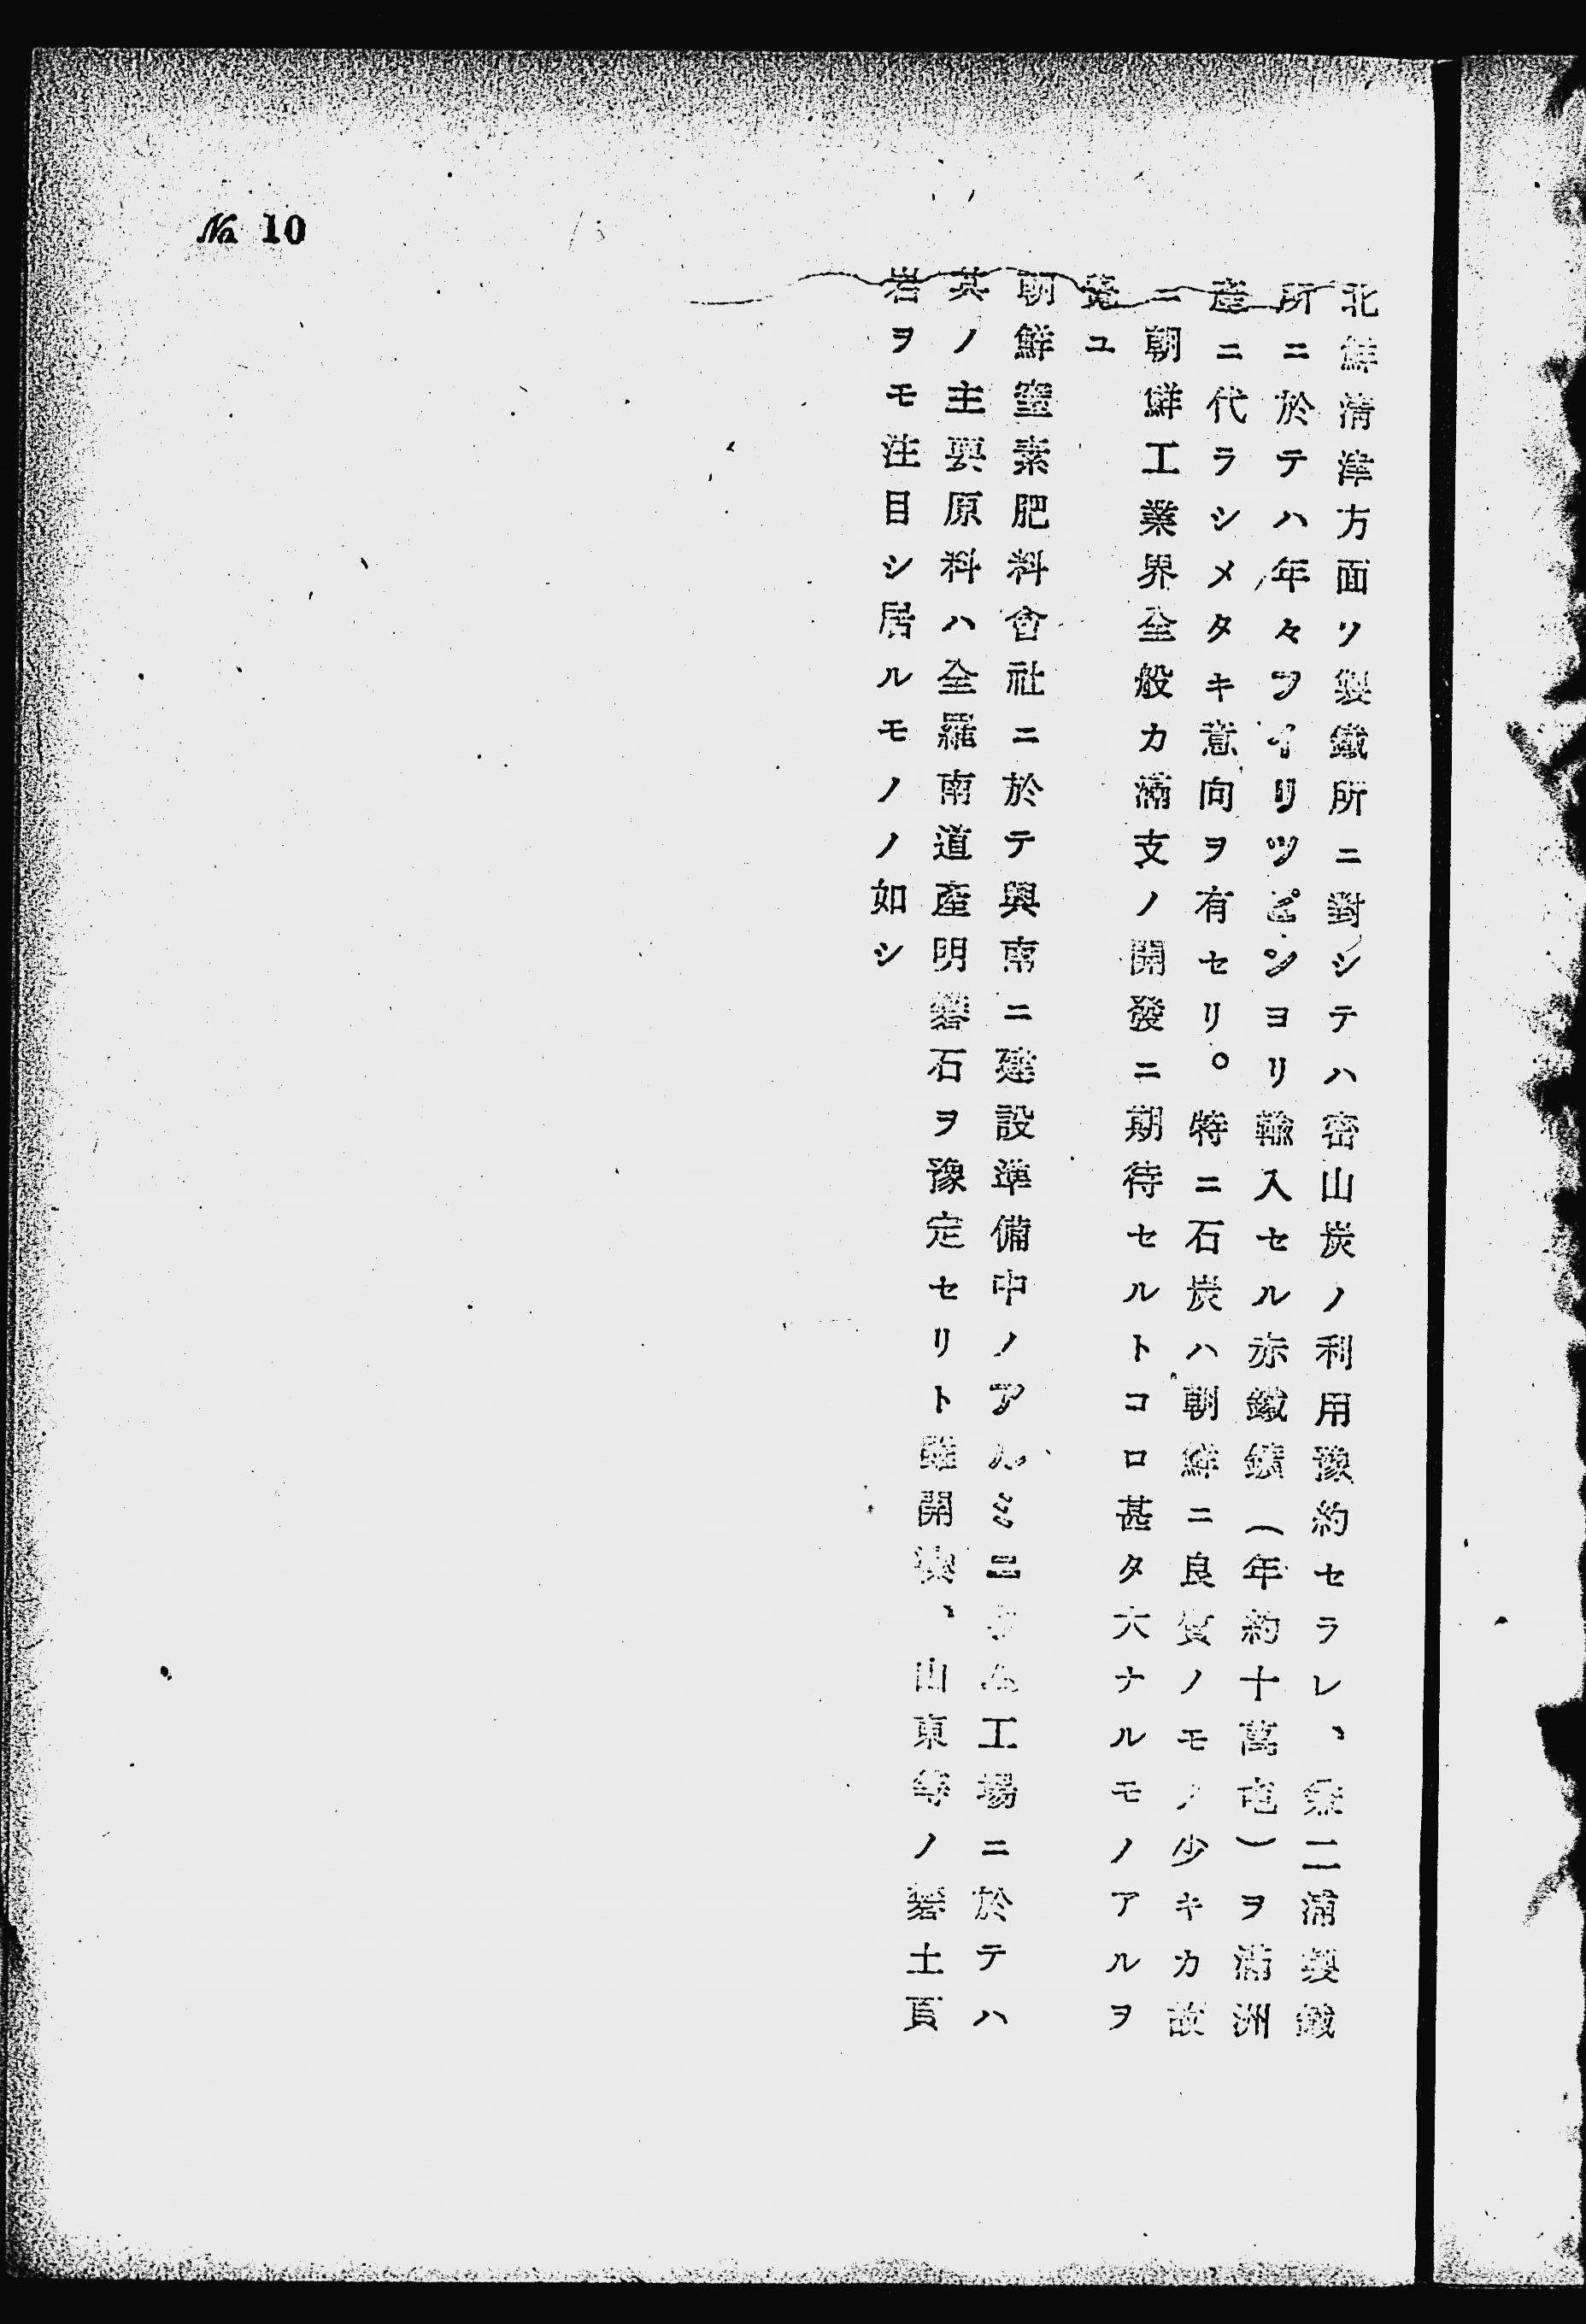 № 10
北鮮淸津方面ノ製鐵所ニ對シテハ密山炭ノ利用豫約セラレ、兼二浦製鐵
所ニ於テハ年々フイリツピンヨリ輸入セル赤鐵鑛(年約十萬屯)ヲ滿洲
產ニ代ラシメタキ意向ヲ有セリ。特ニ石炭ハ朝鮮ニ良質ノモノ少キカ故
ニ朝鮮工業界全般カ滿支ノ開發ニ期待セルトコロ甚タ大ナルモノアルヲ
覺ユ
朝鮮窒素肥料會社ニ於テ興南ニ建設準備中ノアルミニウム工場ニ於テハ
其ノ主要原料ハ全羅南道產明礬石ヲ豫定セリト雖開灤、山東等ノ礬土頁
岩ヲモ注目シ居ルモノノ如シ